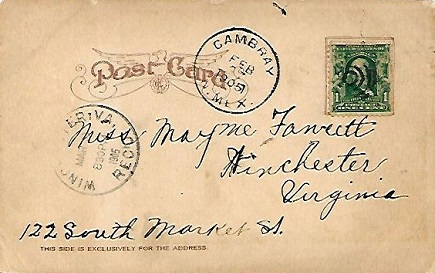 Post Card
CAMBRAY
FEB
1905
N. MEX.
1
WINCHESTER, VA.
MAR
830P
1905
REC'D
Miss Mayme Fawcett
Winchester
Virginia
122 South Market St.
THIS SIDE IS EXCLUSIVELY FOR THE ADDRESS.